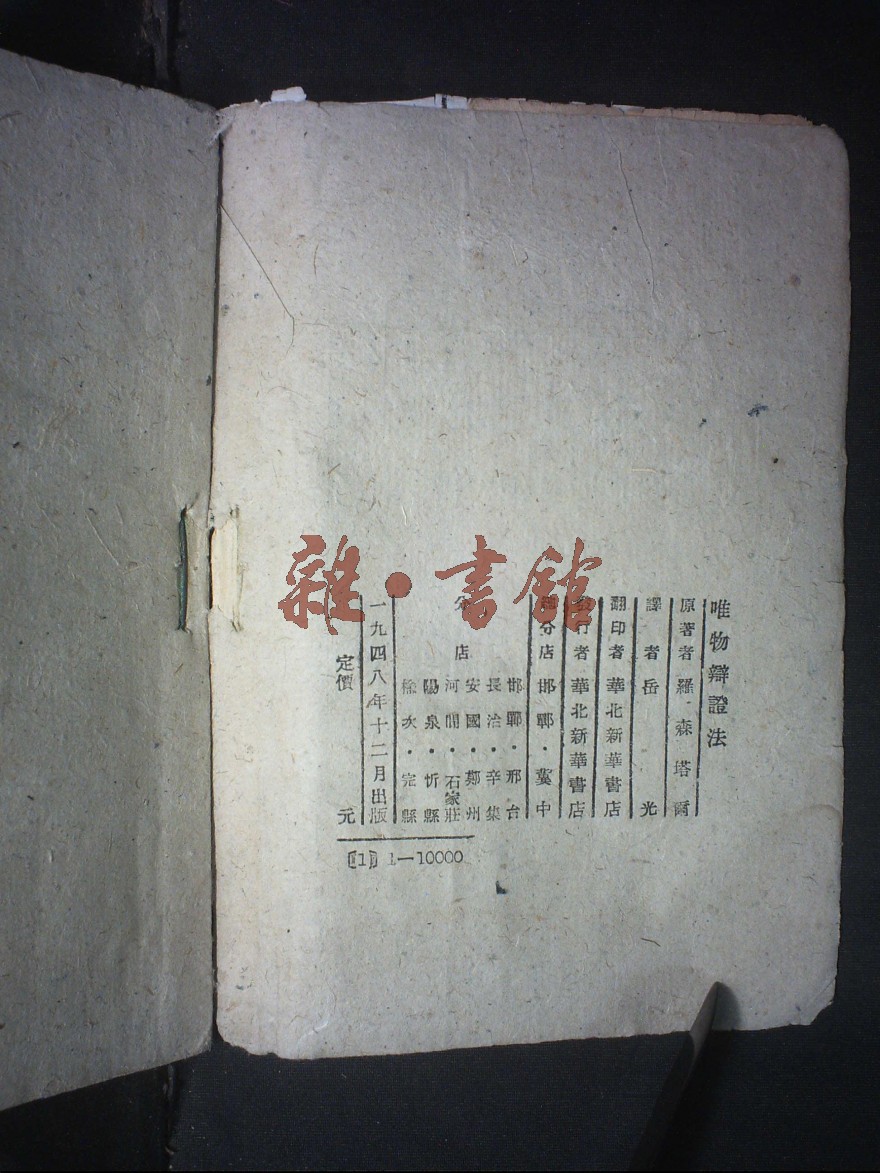 唯物辯證法
原著者 羅森塔爾
譯者 岳光
翻印者 華北新華書店
發行者 華北新華書店
分店 邯鄲·冀中
分店
邯鄲·邢台
長治·辛集
安國·鄭州
河間·石家莊
陽泉·忻縣
榆次·完縣
一九四八年十二月出版
定價 元
〔1〕1—10000
雜·書館